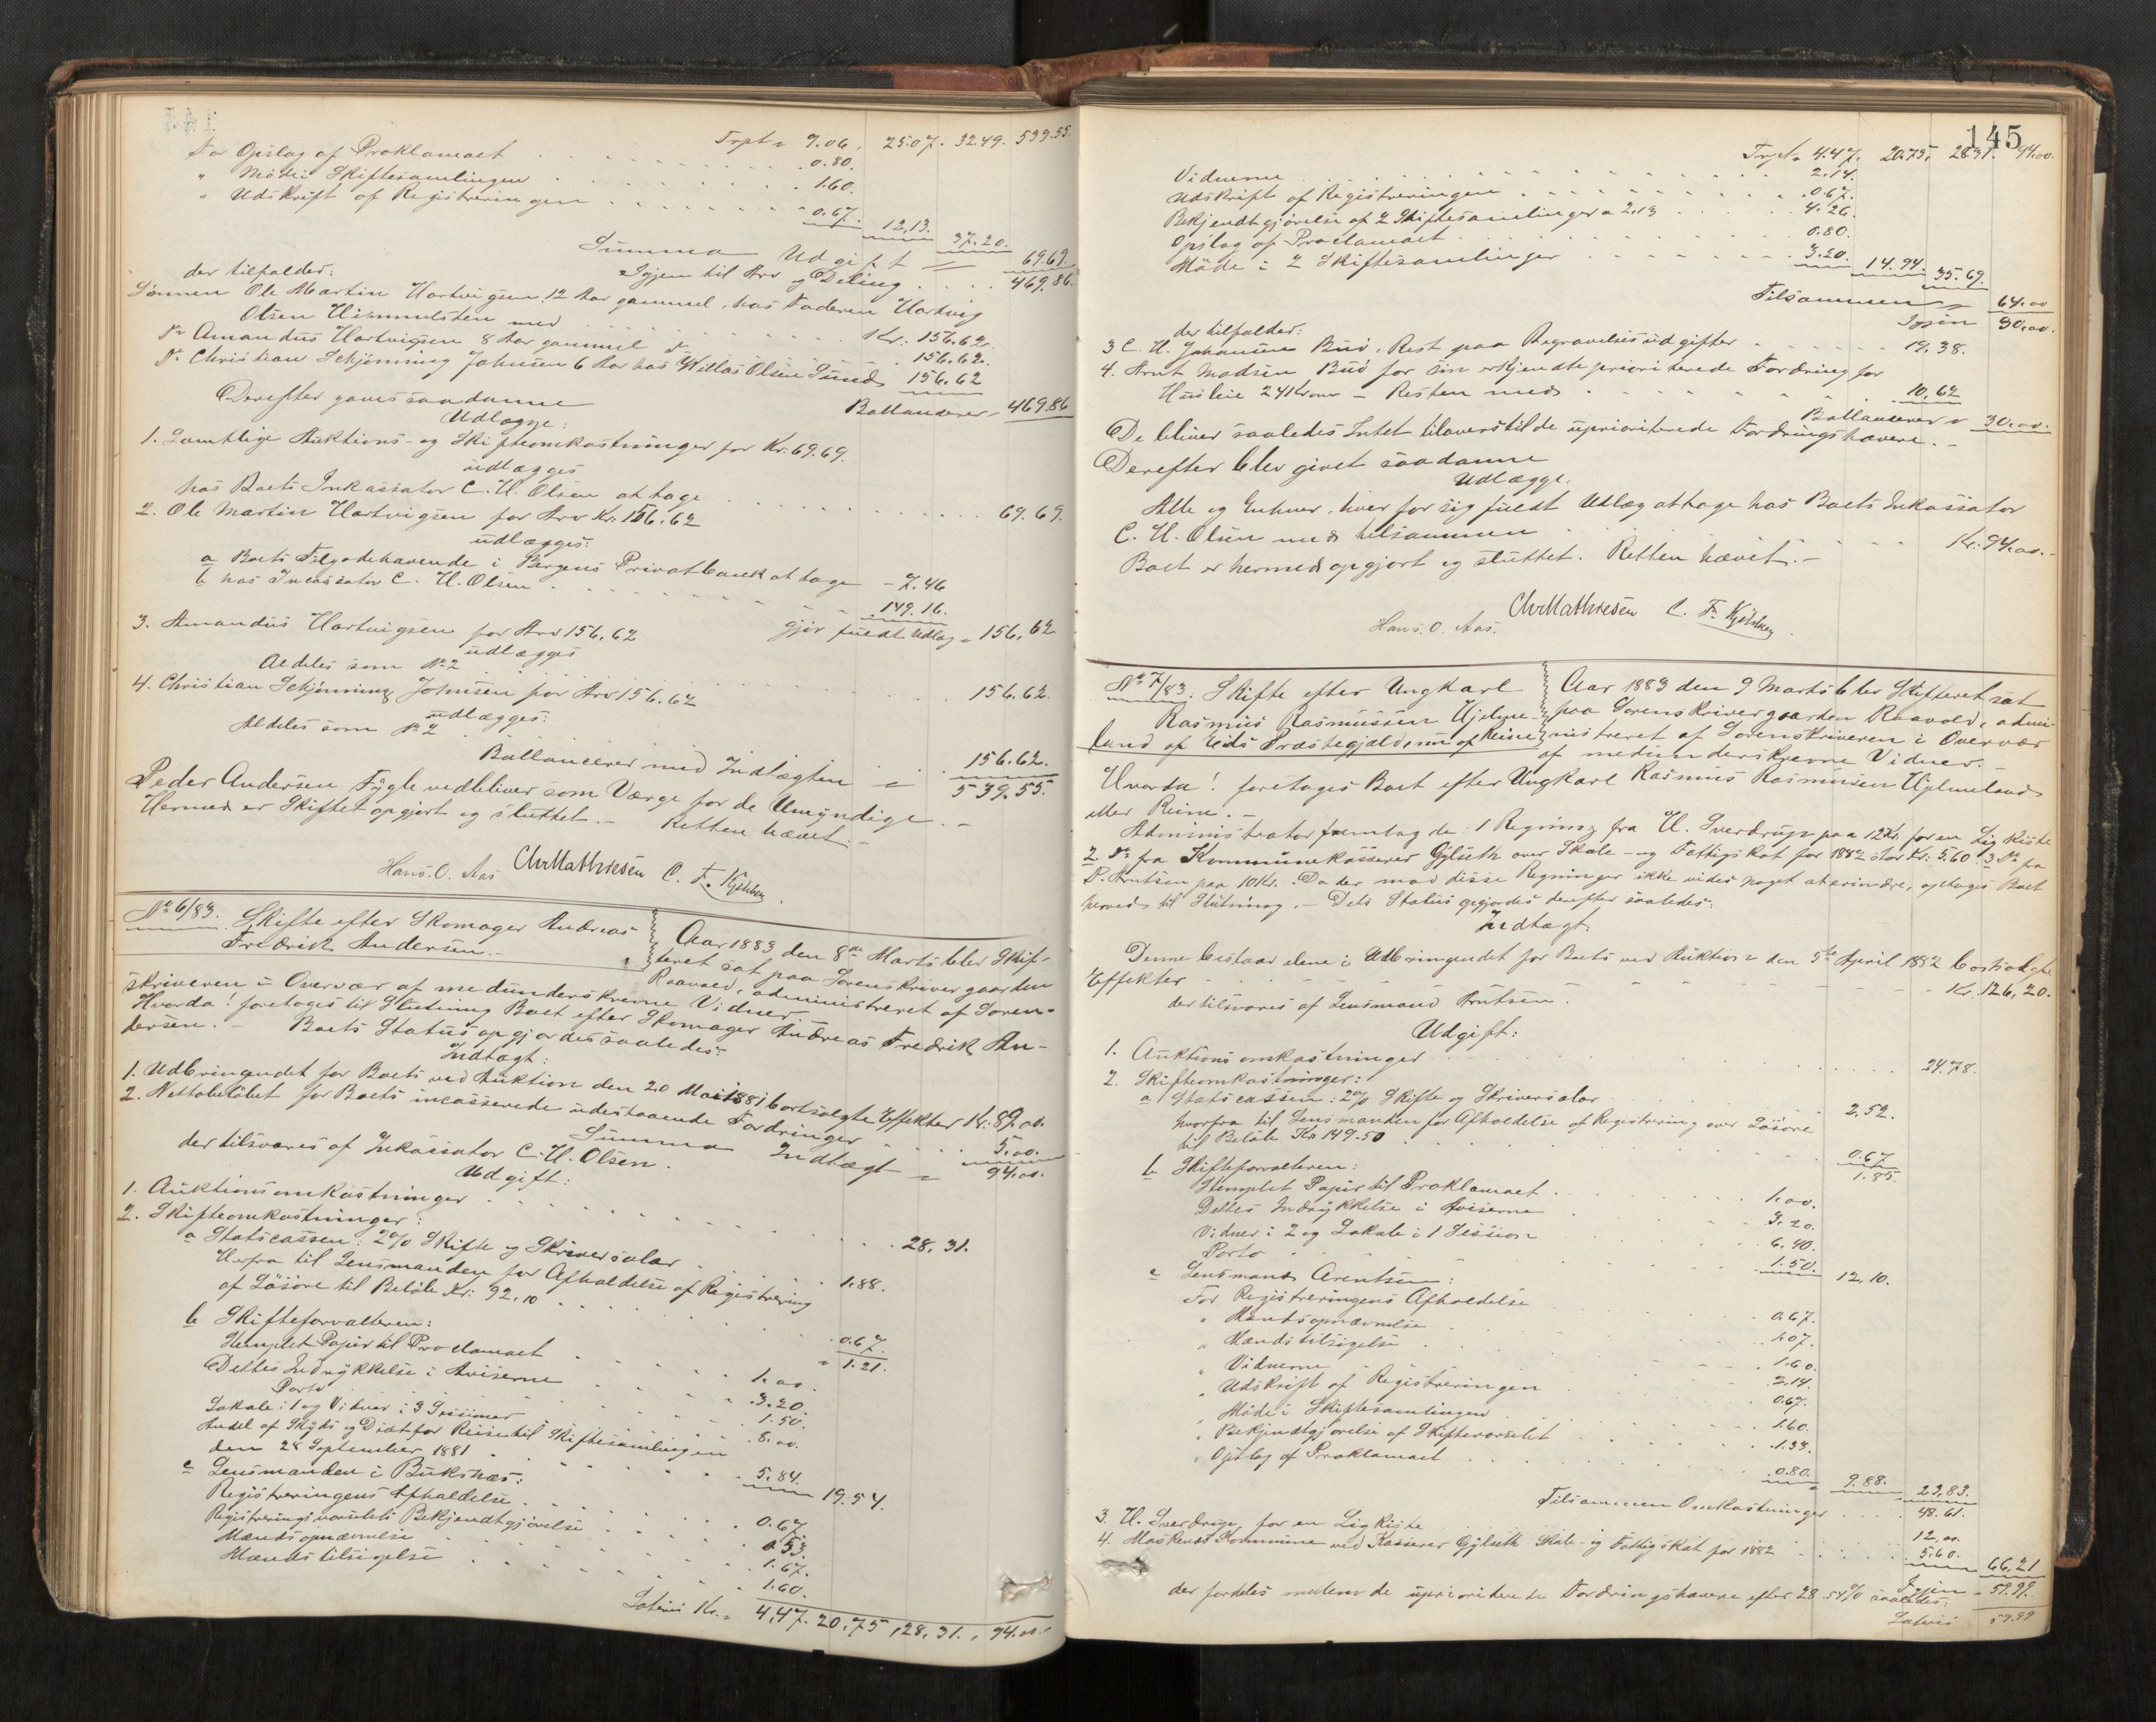 Trpt = 9.06. 25.07. 32.49. 539.55.
For Opslag af Proklamaet 0.80.
" Möde i Skiftesamlingen 1.60.
" Udskrift af Registreringen 0.67. 12.13. 37.20.
Summa Udgift = 69.69.
Igjen til Arv og Deling 469.86.
der tilfalder:
Sönnen Ole Martin Hartvigsen 12 Aar gammel, hos Faderen Hartvig
Olsen Himmelsten med Kr. 156.62.
Do Amandus Hartvigsen 8 Aar gammel do 156.62.
Do Christian Schjønning Johnsen 6 Aar hos Willas Olsen Sund 156.62
Ballancerer = 469.86
Derefter gaves saadanne
Udlægge:
1. Samtlige Auktions- og Skifteomkostninger for Kr. 69.69.
udlægges
hos Boets Inkassator C. H. Olsen at tage 69.69.
2. Ole Martin Hartvigsen for Arv Kr. 156.62
udlægges:
a Boets Tilgodehavende i Bergens Privatbank at tage - 7.46
b hos Incassator C. H. Olsen 149.16.
gjør fuldt Udlæg = 156.62
3. Amandus Hartvigsen for Arv 156.62
udlægges
Aldeles som No 2 156.62.
4. Christian Schjønning Johnsen for Arv 156.62
udlægges:
Aldeles som No 2 156.62.
Ballancerer med Indtægten = 539.55.
Peder Andersen Fygle vedbliver som Værge for de Umyndige.
Hermed er Skiftet opgjort og sluttet. - Retten hævet. -
Hans. O. Aas Chr Mathiesen C. F.
No 6/83. Skifte efter Skomager Andreas
Fredrik Andersen. -
Aar 1883 den 8de Marts blev Skif-
teret sat paa Sorenskrivergaarden
Raavold, administreret af Soren-
skriveren i Overvær af medunderskrevne Vidner.
Hvorda! foretoges til Slutning Boet efter Skomager Andreas Fredrik An-
dersen. - Boets Status opgjordes saaledes:
Indtægt:
1. Udbringendet for Boets ved Auktion den 20 Mai 1881 bortsolgte Effekter Kr. 89.00.
2. Nettobeløbet for Boets incasserede udestaaende Fordringer 5.00.
Summa Indtægt = 94.00.
der tilsvares af Inkassator C. H. Olsen.
Udgift:
1. Auktionsomkostninger 28.31.
2. Skifteomkostninger:
a Statscassen: 2% Skifte og Skriversalar 1.88.
Herfra til Lensmanden for Afholdelse af Registrering
af Løsøre til Beløb Kr: 92.10 0.67.
1.21.
b Skifteforvalteren:
Stemplet Papir til Proclamaet 1.00.
Dettes Indrykkelse i Aviserne 3.20.
Porto 1.50.
Lokale i 1 og Vidner i 3 Sessioner 8.00.
Andel af Skyds og Diæt for Reise til Skiftesamlingen
den 28 September 1881 5.84. 19.54.
c Lensmanden i Buksnæs:
Registreringens Afholdelse 0.67.
Registreringsvarslets Bekjendtgjørelse 0.53.
Mændsopnævnelse 1.67.
Mænds tilsigelse 1.60.
Lateris Kr. = 4,47. 20,75, 28,31., 94.00.
145
Trpt = 4.47. 20.75. 28.31. 94.00.
Vidnerne 2.14.
Udskrift af Registreringen 0.67.
Bekjendtgjørelse af 2 Skiftesamlinger a 2.13 4.26.
Opslag af Proclamaet 0.80.
Møde i 2 Skiftesamlinger 3.20. 14.94. 35.69.
Tilsammen = 64.00
Igjen 30.00.
der tilfalder:
3 C. H. Johansens Bud, Rest paa Begravelsesudgifter 19.38.
4. Arnt Madsen Bud for sin erkjendte prioriterede Fordring for
Husleie 24 Kroner - Resten med 10.62
Ballancerer = 30.00.
De bliver saaledes Intet tilovers til de uprioriterede Fordringshavere. -
Derefter blev givet saadanne
Udlægge:
Alle og Enhver, hver for sig fuldt Udlæg at tage hos Boets Inkassator
C. H. Olsen med tilsammen Kr. 94.00.-
Boet er hermed opgjort og sluttet. Retten hævet. -
Hans. O. Aas. Chr Mathiesen C. F.
No 7/83. Skifte efter Ungkarl
Rasmus Rasmussen Hjelme-
land af Eids Præstegjeld, nu af Reine
Aar 1883 den 9 Marts blev Skifteret sat
paa Sorenskrivergaarden Raavold, admi-
nistreret af Sorenskriveren i Overvær
af medunderskrevne Vidner. -
Hvorda! foretoges Boet efter Ungkarl Rasmus Rasmussen Hjelmeland
eller Reine. -
Administrator fremlagde: 1 Regning fra H. Sverdrup paa 12 Kr. for en Ligkiste
2 Do fra Kommunekasserer Gylseth over Skole- og Fattigskat for 1882 stor Kr: 5.60. 3 Do fra
P. Arntsen paa 10 Kr. Da der mod disse Regninger ikke vides noget at erindre, optages Boet
herved til Slutning. - Dets Status opgjordes derefter saaledes:
Indtægt:
Denne bestaar alene i Udbringendet for Boets ved Auktion den 5te April 1882 bortsolgte
Effekter Kr. 126,20.
der tilsvares af Lensmand Arntsen.
Udgift:
1. Auktionsomkostninger 24.78.
2. Skifteomkostninger:
a Statscassen: 2% Skifte og Skriversalar 2.52.
hvorfra til Lensmanden for Afholdelse af Registrering over Løsøre
til Beløb Kr 149.50 0.67
1.85.
b Skifteforvalteren:
Stemplet Papir til Proklamaet 1.00.
Dettes Indrykkelse i Aviserne 3.20.
Vidner i 2 og Lokale i 1 Session 6.40.
Porto 1.50. 12.10.
c Lensmand Arentsen:
For Registreringens Afholdelse 0.67.
" Mandsopnævnelse 1.07.
" Mænds tilsigelse 1.60.
" Vidnerne 2.14.
" Udskrift af Registreringen 0.67.
" Möde i Skiftesamlingen 1.60.
" Bekjendtgjørelse af Skiftevarslet 1.33.
" Opslag af Proklamaet 0.80. 9.88. 23.83.
Tilsammen Omkostninger 48.61.
3. H. Sverdrup for en Ligkiste 12.00.
4. Moskenes Kommune ved Kasserer Gylseth Skole- og Fattigskat for 1882 5.60. 66.21
Igjen = 59.99.
der fordeles mellem de uprioriterede Fordringshavere efter 28.54% saaledes:
Lateris 59.99